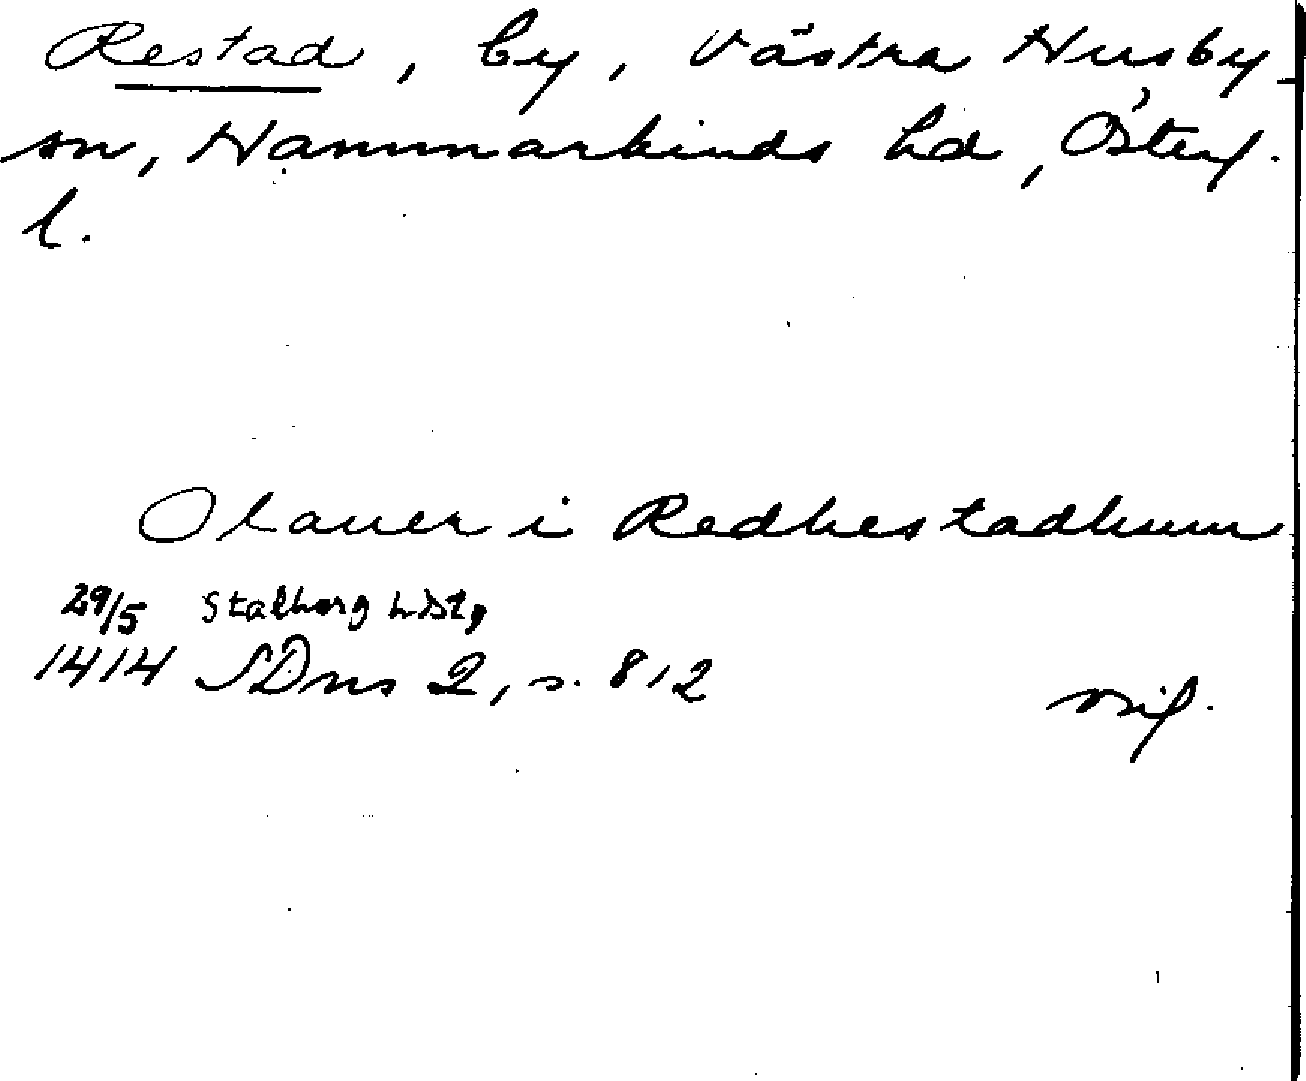 Restad, by, Västra Husby
sn, Hammarkinds hd, Österg.
l.
Olauer i Redhestadhum
29/5 Stalborg
1414 SDns 2, s. 812 orig.